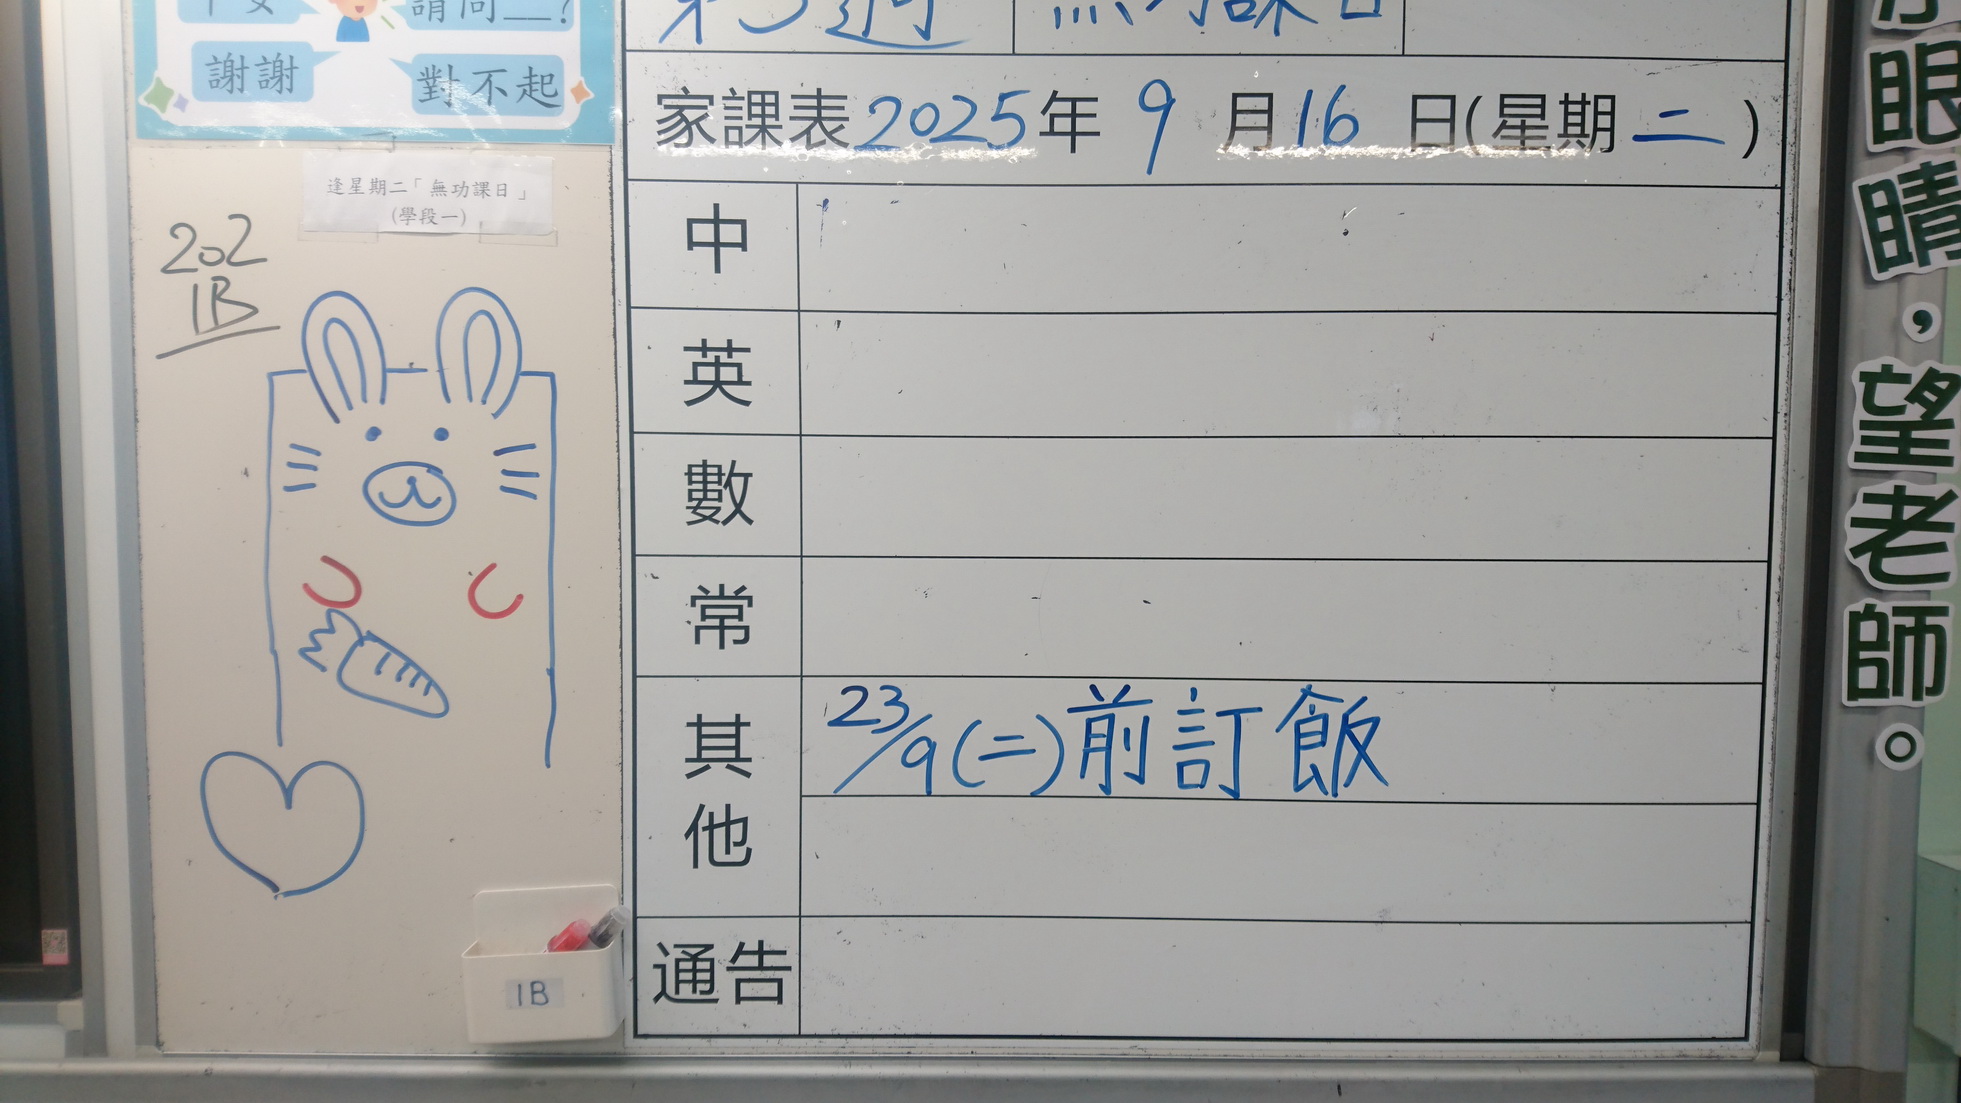 請問__?
謝謝
對不起
逢星期二「無功課日」
(學段一)
202
1B
1B
無功課日
家課表2025年 9 月16 日(星期二)
中
英
數
常
其他
23/9(二)前訂飯
通告
眼睛，望老師。